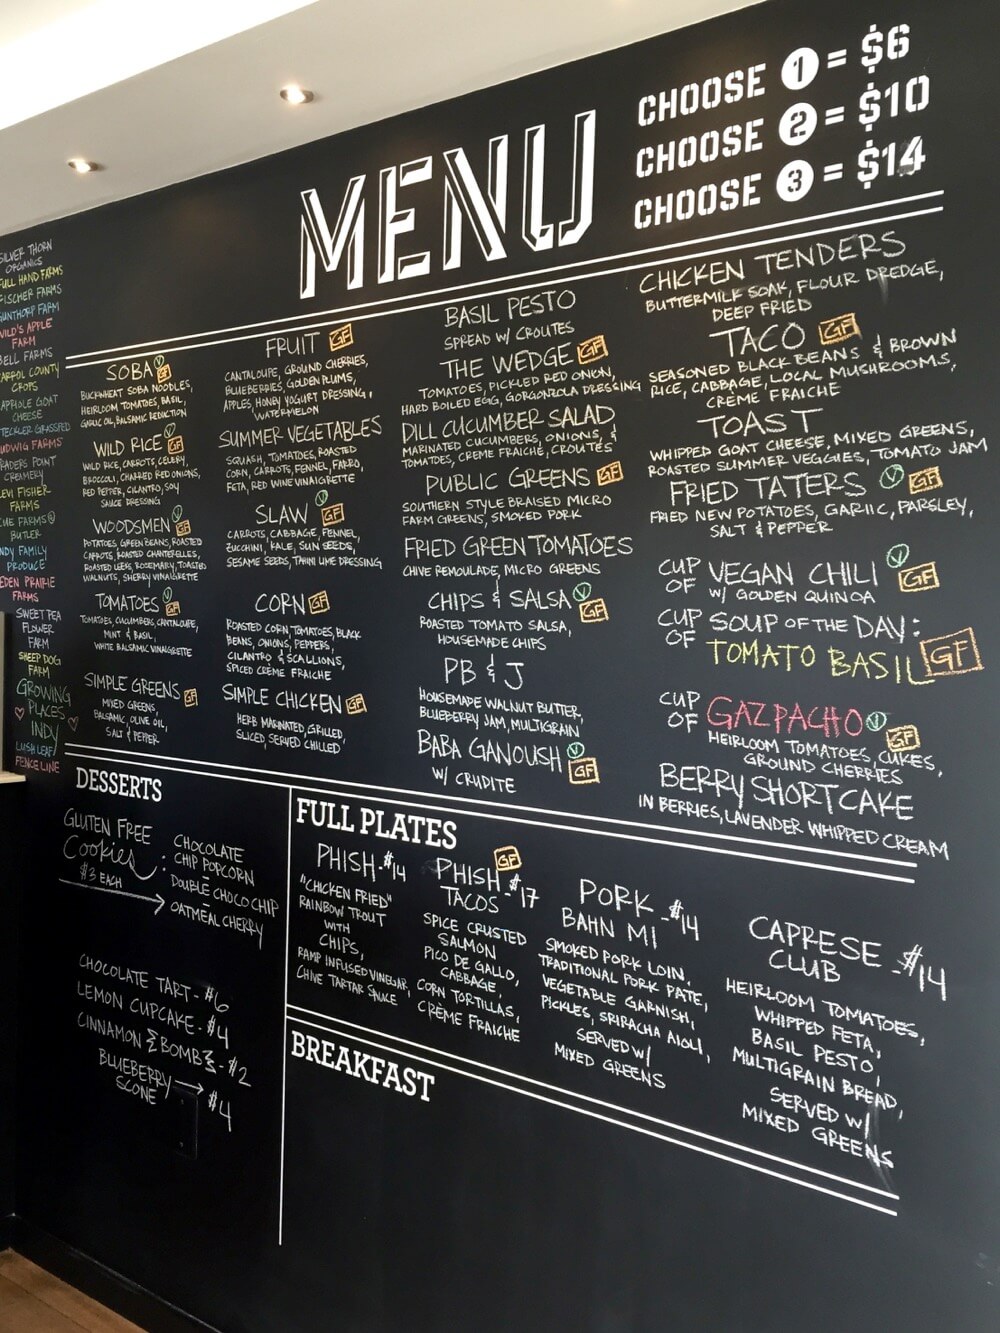 MENU
CHOOSE 1 = $6
CHOOSE 2 = $10
CHOOSE 3 = $14
SILVER THORN
ORGANICS
FULL HAND FARMS
FISCHER FARMS
GUNTHORP FARM
WILD'S APPLE
FARM
BELL FARMS
CARROL COUNTY
CROPS
CAPRIOLE GOAT
CHEESE
LUDWIG FARMS
TRADERS POINT
CREAMERY
LEVI FISHER
FARMS
BUTLER
INDY FAMILY
PRODUCE
EDEN PRAIRIE
FARMS
SWEET PEA
FLOWER
FARM
SHEEP DOG
FARM
GROWING
PLACES
INDY
LUSH LEAF
FENCE LINE
SOBA V GF
BUCKWHEAT SOBA NOODLES,
HEIRLOOM TOMATOES, BASIL,
GARLIC OIL, BALSAMIC REDUCTION
WILD RICE V GF
WILD RICE, CARROTS, CELERY,
BROCCOLI, CHARRED RED ONIONS,
RED PEPPER, CILANTRO, SOY
SAUCE DRESSING
WOODSMEN V GF
POTATOES, GREEN BEANS, ROASTED
CARROTS, ROASTED CHANTERELLES,
ROASTED LEEKS, ROSEMARY, TOASTED
WALNUTS, SHERRY VINAIGRETTE
TOMATOES V GF
TOMATOES, CUCUMBERS, CANTALOUPE,
MINT & BASIL,
WHITE BALSAMIC VINAIGRETTE
SIMPLE GREENS GF
MIXED GREENS,
BALSAMIC, OLIVE OIL,
SALT & PEPPER
FRUIT GF
CANTALOUPE, GROUND CHERRIES,
BLUEBERRIES, GOLDEN PLUMS,
APPLES, HONEY YOGURT DRESSING,
WATERMELON
SUMMER VEGETABLES
SQUASH, TOMATOES, ROASTED
CORN, CARROTS, FENNEL, FARRO,
FETA, RED WINE VINAIGRETTE
SLAW V GF
CARROTS, CABBAGE, FENNEL,
ZUCCHINI, KALE, SUN SEEDS,
SESAME SEEDS, TAHINI LIME DRESSING
CORN GF
ROASTED CORN, TOMATOES, BLACK
BEANS, ONIONS, PEPPERS,
CILANTRO & SCALLIONS,
SPICED CRÈME FRAICHE
SIMPLE CHICKEN GF
HERB MARINATED, GRILLED,
SLICED, SERVED CHILLED
BASIL PESTO
SPREAD W/ CROUTES
THE WEDGE GF
TOMATOES, PICKLED RED ONION,
HARD BOILED EGG, GORGONZOLA DRESSING
DILL CUCUMBER SALAD
MARINATED CUCUMBERS, ONIONS, &
TOMATOES, CREME FRAICHE, CROUTES
PUBLIC GREENS GF
SOUTHERN STYLE BRAISED MICRO
FARM GREENS, SMOKED PORK
FRIED GREEN TOMATOES
CHIVE REMOULADE, MICRO GREENS
CHIPS & SALSA V GF
ROASTED TOMATO SALSA,
HOUSEMADE CHIPS
PB & J
HOUSEMADE WALNUT BUTTER,
BLUEBERRY JAM, MULTIGRAIN
BABA GANOUSH V GF
W/ CRUDITE
CHICKEN TENDERS
BUTTERMILK SOAK, FLOUR DREDGE,
DEEP FRIED
TACO GF
SEASONED BLACK BEANS & BROWN
RICE, CABBAGE, LOCAL MUSHROOMS,
CRÈME FRAICHE
TOAST
WHIPPED GOAT CHEESE, MIXED GREENS,
ROASTED SUMMER VEGGIES, TOMATO JAM
FRIED TATERS V GF
FRIED NEW POTATOES, GARLIC, PARSLEY,
SALT & PEPPER
CUP OF VEGAN CHILI V GF
W/ GOLDEN QUINOA
CUP OF SOUP OF THE DAY:
TOMATO BASIL GF
CUP OF GAZPACHO V GF
HEIRLOOM TOMATOES, CUKES,
GROUND CHERRIES
BERRY SHORTCAKE
IN BERRIES, LAVENDER WHIPPED CREAM
DESSERTS
GLUTEN FREE
Cookies :
$3 EACH
CHOCOLATE
CHIP POPCORN
DOUBLE CHOCO CHIP
OATMEAL CHERRY
CHOCOLATE TART - $6
LEMON CUPCAKE - $4
CINNAMON BOMBS - $2
BLUEBERRY
SCONE → $4
FULL PLATES
PHISH - $14
"CHICKEN FRIED"
RAINBOW TROUT
WITH
CHIPS,
RAMP INFUSED VINEGAR,
CHIVE TARTAR SAUCE
GF
PHISH
TACOS - $17
SPICE CRUSTED
SALMON
PICO DE GALLO,
CABBAGE
CORN TORTILLAS,
CRÈME FRAICHE
PORK
BAHN MI - $14
SMOKED PORK LOIN,
TRADITIONAL PORK PATE,
VEGETABLE GARNISH,
PICKLES, SRIRACHA AIOLI,
SERVED W/
MIXED GREENS
CAPRESE
CLUB - $14
HEIRLOOM TOMATOES,
WHIPPED FETA,
BASIL PESTO,
MULTIGRAIN BREAD,
SERVED W/
MIXED GREENS
BREAKFAST